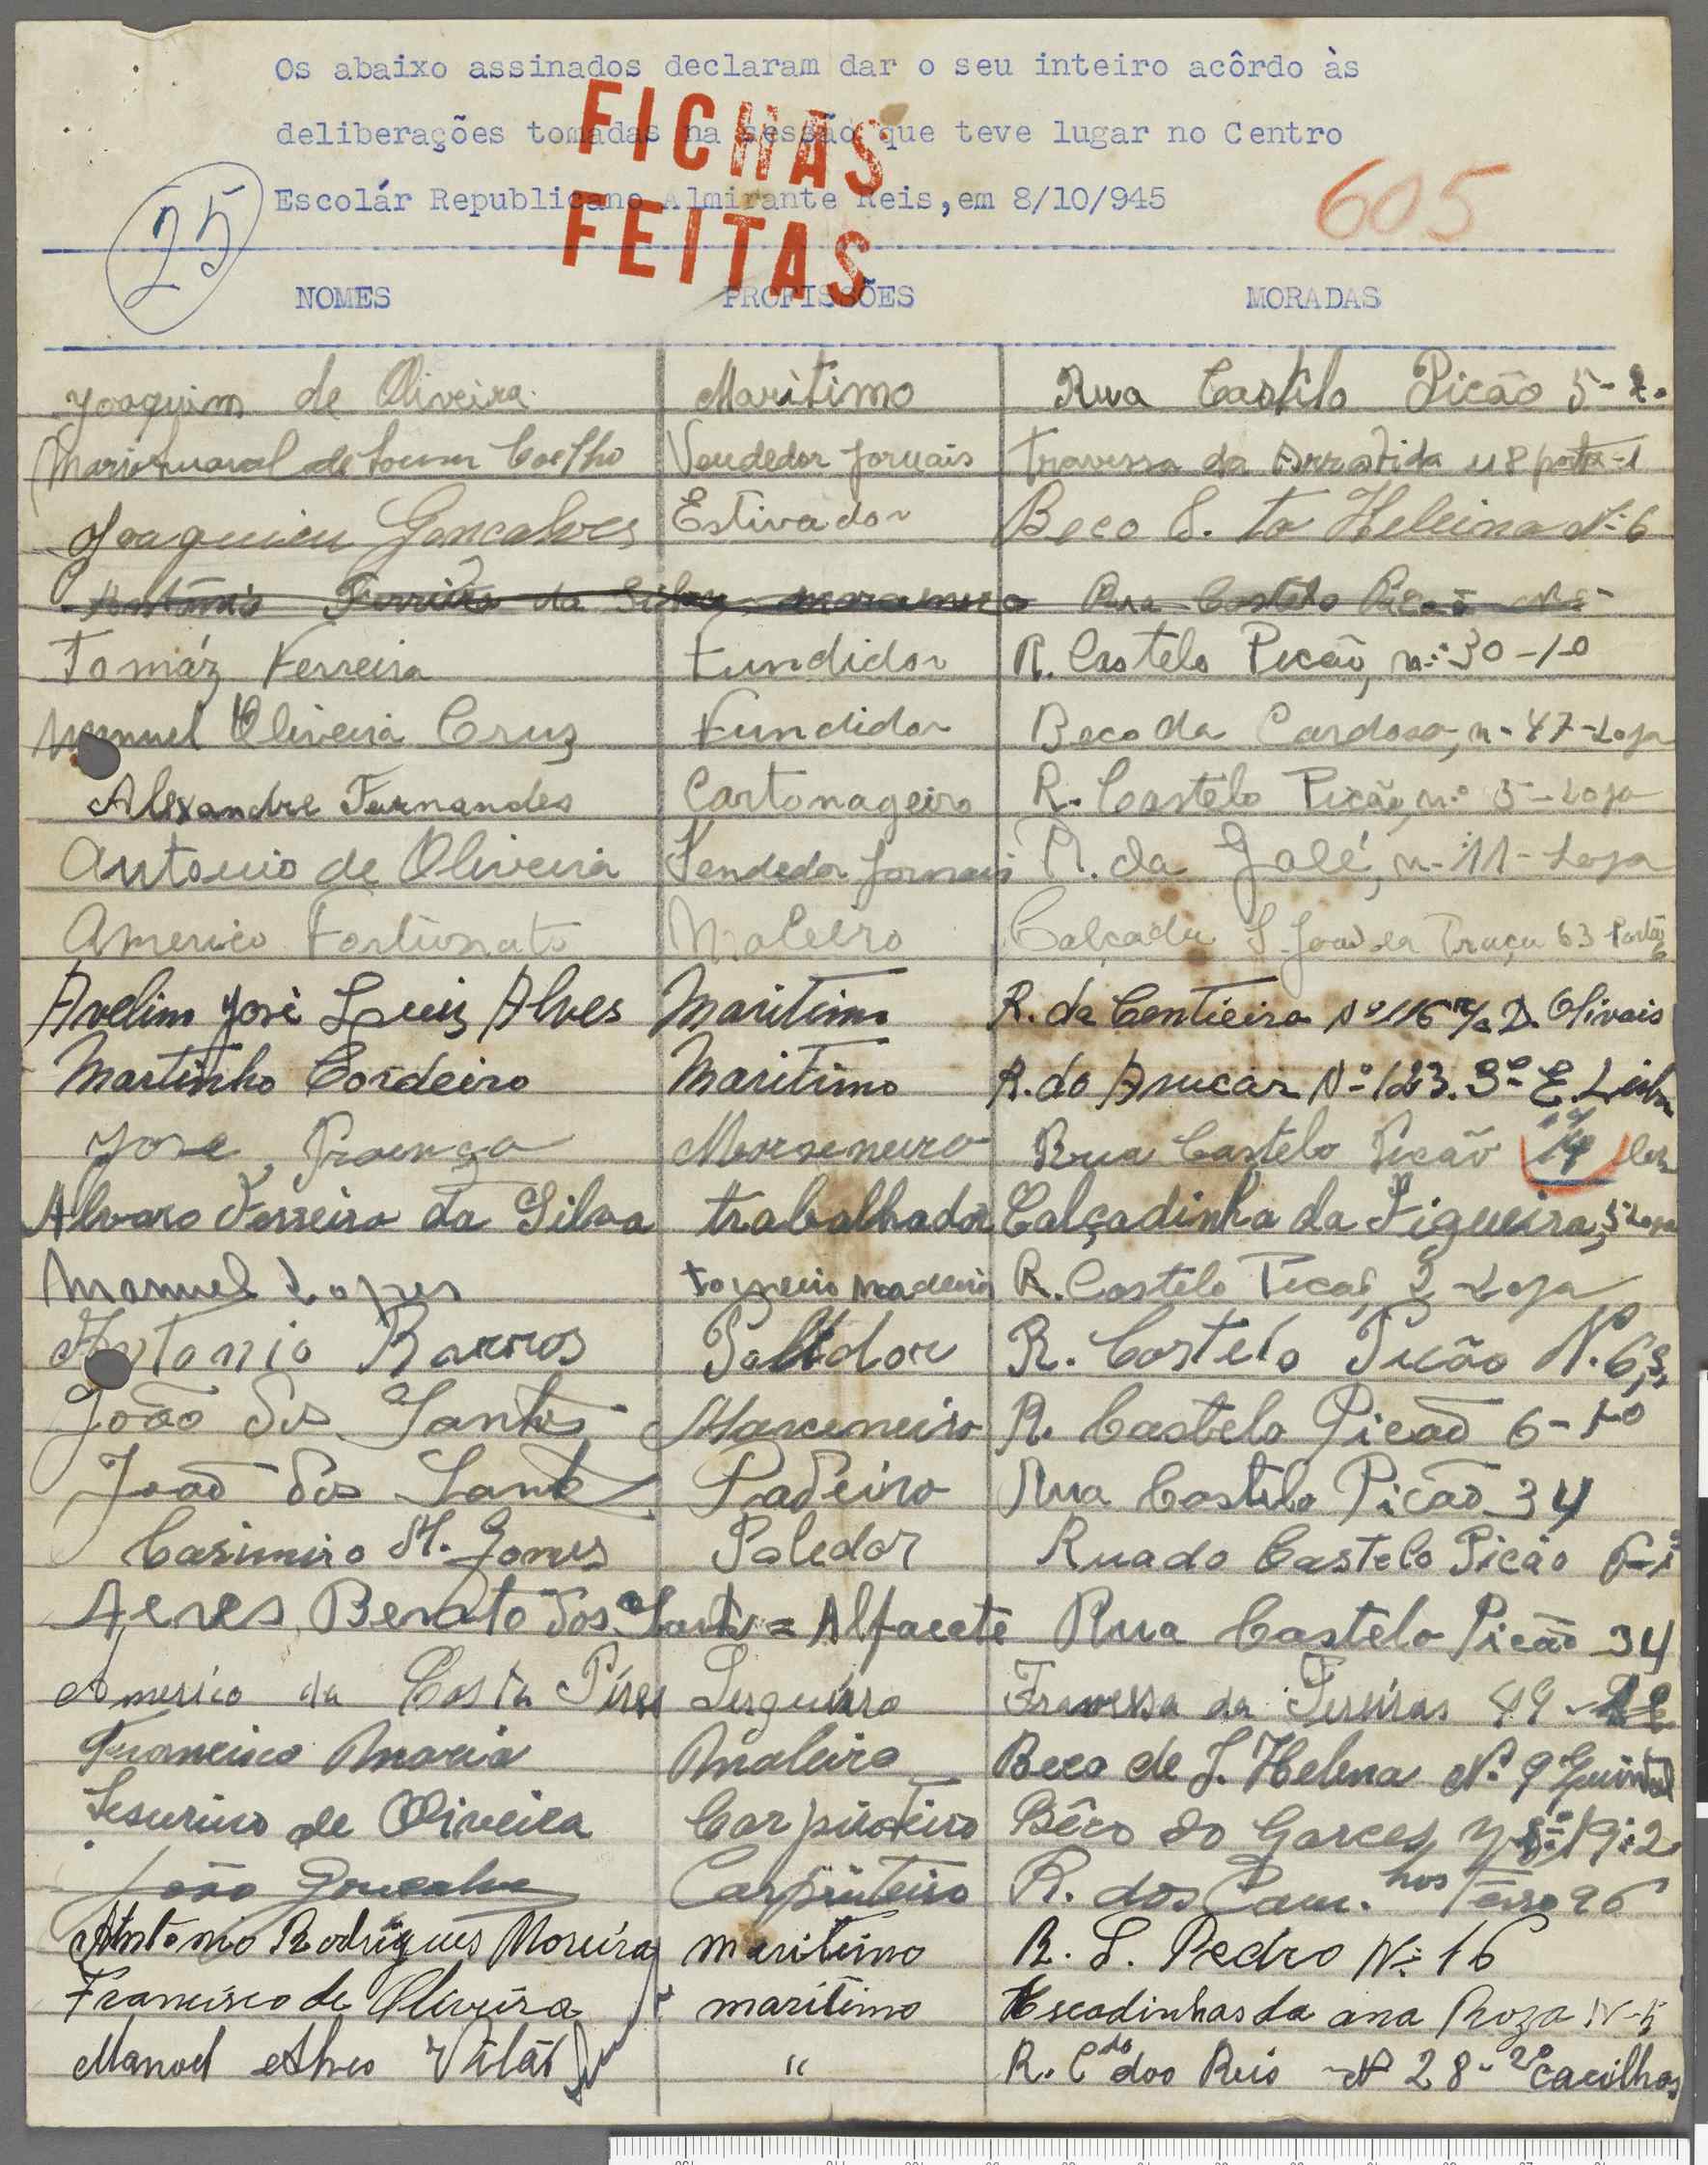 Os abaixo assinados declaram dar o seu inteiro acôrdo às
deliberações tomadas na sessão que teve lugar no Centro
Escolár Republicano Almirante Reis,em 8/10/945
FICHAS
FEITAS
605
25
NOMES PROFISSÕES MORADAS
Joaquim de Oliveira Marítimo Rua Castelo Picão 5-
Mario de Coelho Vendedor Jornais Travessa da 18 porta-1
Joaquim Goncalves Estivador Beco S. ta Heleina Nº 6
Antonio Ferreira da Silva Rua Castelo Picão
Tomáz Ferreira Fundidor R. Castelo Picão, n.º 30-1-o
Manuel Oliveira Cruz Fundidor Beco da Cardosa, n- 47-Loja
Alexandre Fernandes Cartonageiro R. Castelo Picão, n.º 5-Loja
Antonio de Oliveira Vendedor Jornais R. da Galé, n- 11-Loja
Americo Fortunato Maleiro Calçada S. João da Praça 63 Porta 6
Avelim José Luiz Alves Maritimo R. da Centieira Nº 116 r/c D. Olivais
Martinho Cordeiro Maritimo R. do Assucar Nº 123. 3º E. Lisboa
José Proença Marseneiro Rua Castelo Picão 14
Alvaro Ferreira da Silva trabalhador Calçadinha da Figueira, 5 Loja
Manuel Lopes torneiro madeira R. Castelo Picão, Loja
Antonio Barros Polidor R. Castelo Picão N. 6,
João dos Santos Marceneiro R. Castelo Picão 6-1-o
João dos Santos Padeiro Rua Castelo Picão 34
Casimiro M. Gomes Poledor Rua do Castelo Picão
Benito dos Santos = Alfacete Rua Castelo Picão 34
Americo da Costa Píres Travessa da 49
Francisco Maria Maleiro Beco de S. Helena Nº 9 Quintal
de Oliveira Carpinteiro Bêco do Garces 19
João Gonçalves Carpinteiro R. dos Cam.hos Terro 96
Antonio Rodrigues Moreira maritimo R. S. Pedro Nº 16
Francisco de Oliveira maritimo Escadinhas da ana Roza N-5
Manoel Alves Vilão " R. Cdo dos Reis Nº 28-2º Cacilhas